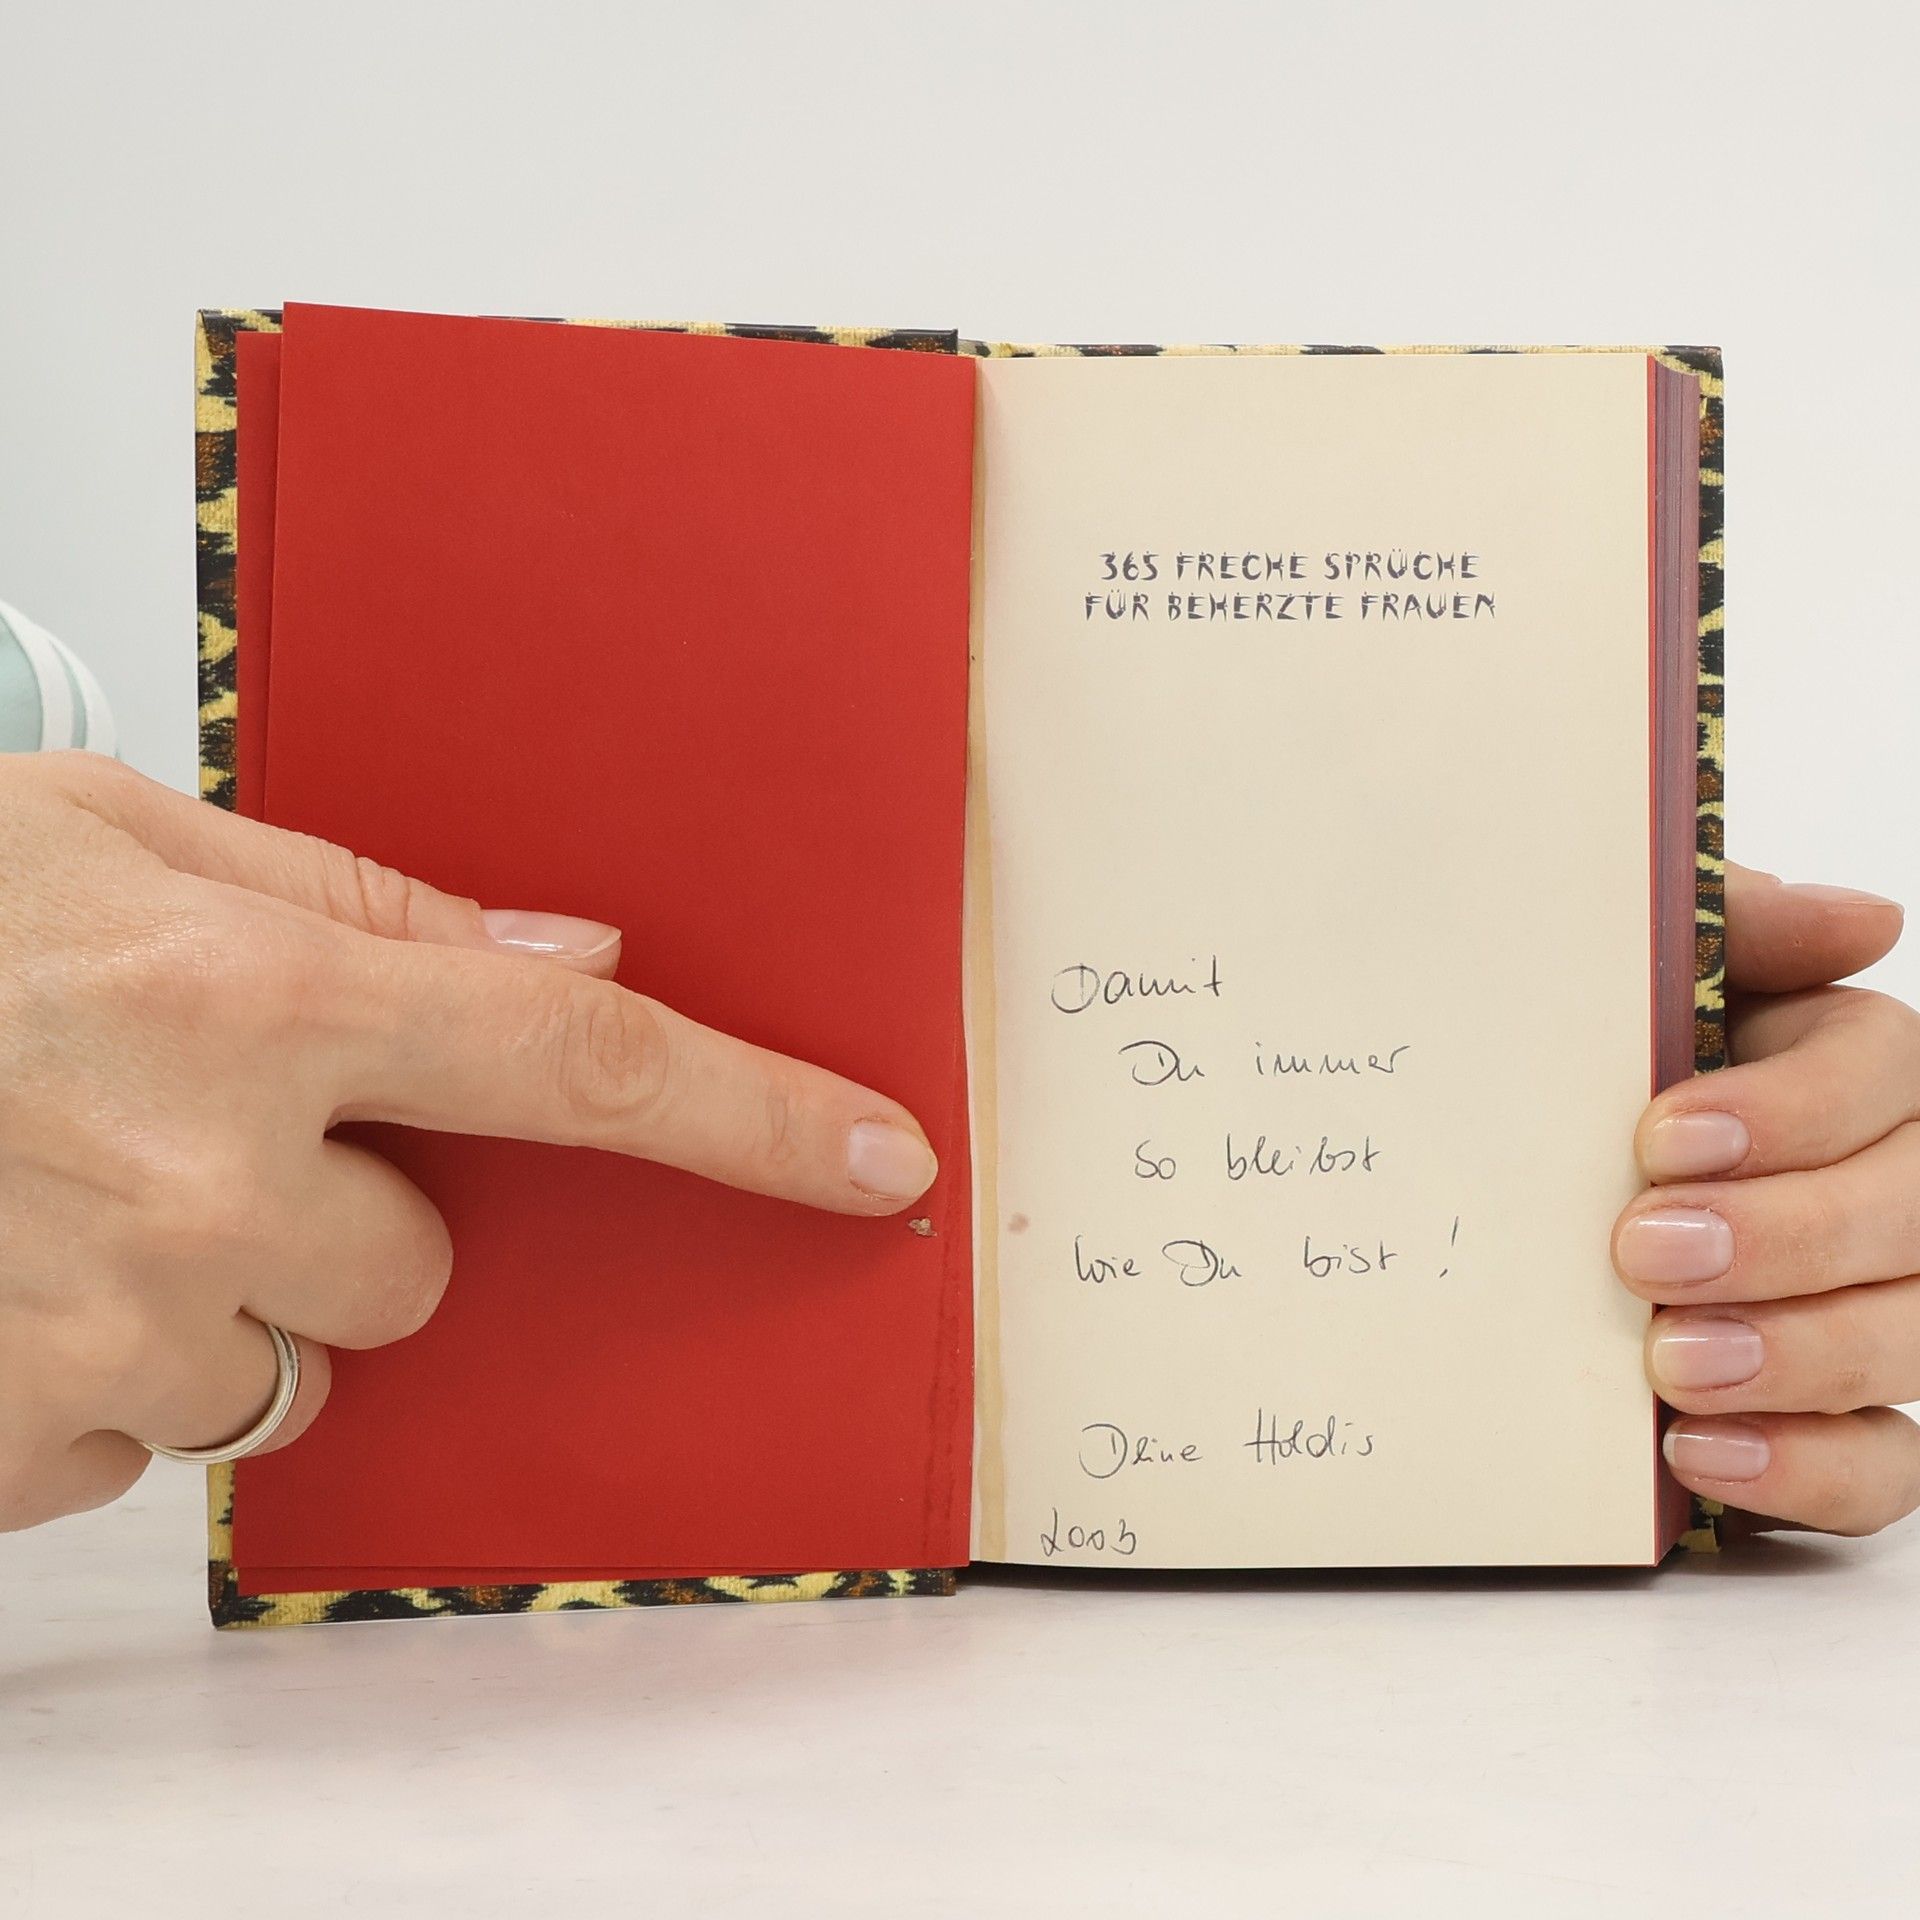 365 FRECHE SPRÜCHE
FÜR BEHERZTE FRAUEN
Damit
Du immer
so bleibst
wie Du bist !
Deine Holdis
2003